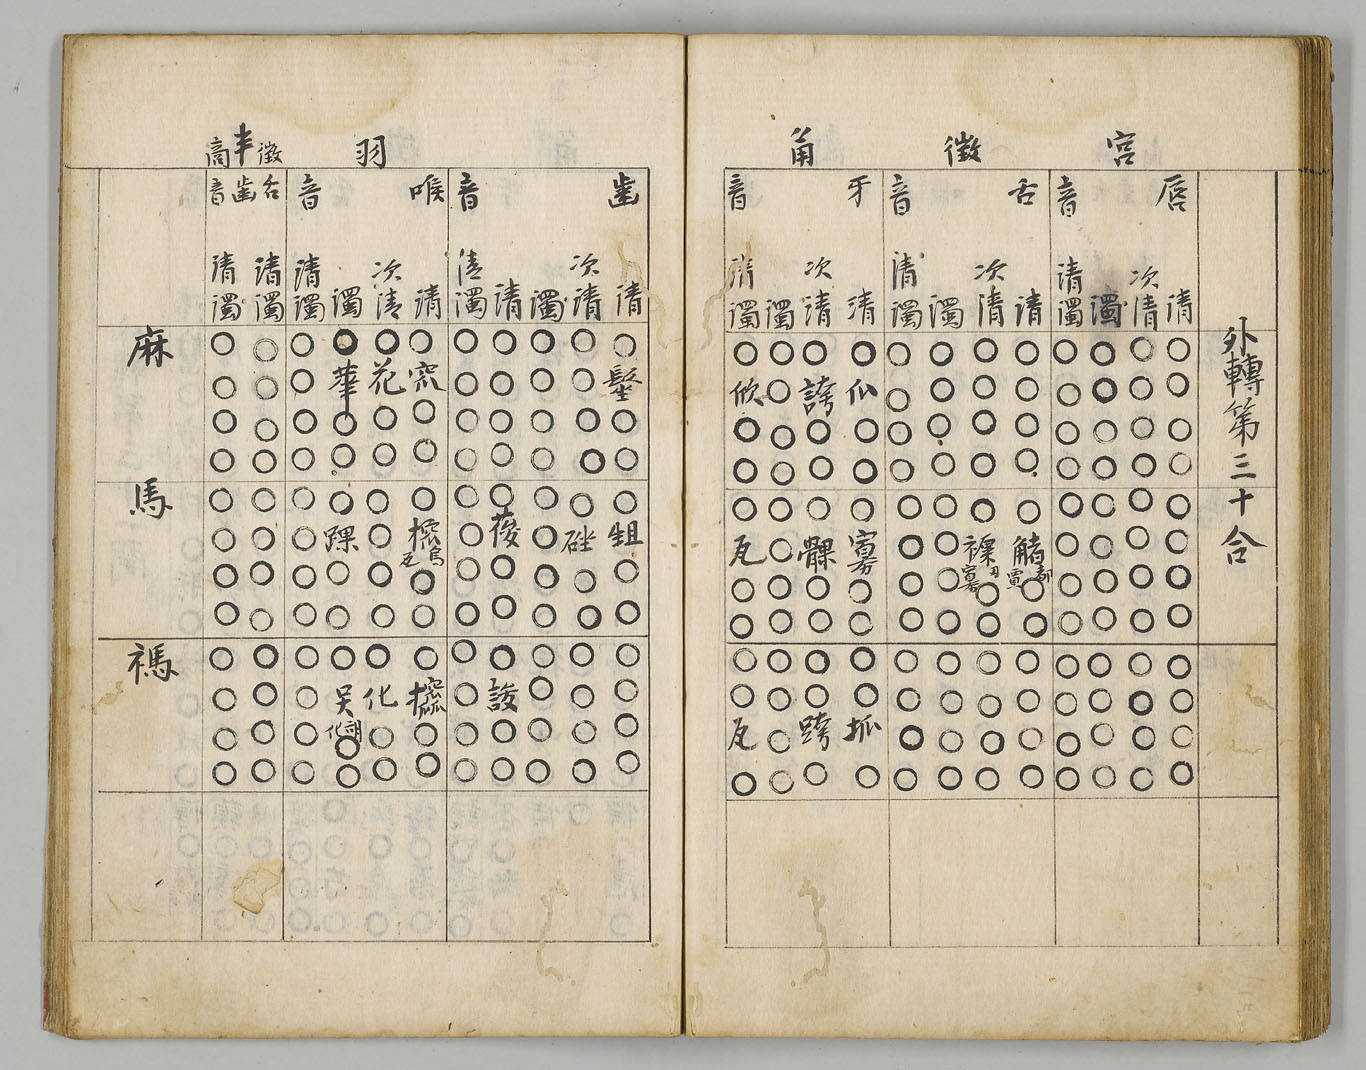 外轉第三十合
宮
徵
角
羽
半徵
商
脣音
舌音
牙音
齒音
喉音
舌齒音
清
次清
濁
清濁
清
次清
濁
清濁
清
次清
濁
清濁
清
次清
濁
清
清濁
清
次清
濁
清濁
清濁
清濁
○○○○○○○○○○○○○○○○○○○○○○○
○○○○○○○○瓜誇○㑪髽○○○○窊花華○○○
○○○○○○○○○○○○○○○○○○○○○○○
○○○○○○○○○○○○○○○○○○○○○○○
麻
○○○○○○○○○○○○○○○○○○○○○○○
○○○○䐗䋾○○寡髁○瓦䂳硰○葰○搲踝○○○
○○○○○○○○○○○○○○○○○○○○○○○
○○○○○○○○○○○○○○○○○○○○○○○
馬
○○○○○○○○○○○○○○○○○○○○○○○
○○○○○○○○○○○○○○○誜○攨化吴○○○
○○○○○○○○抓跨○瓦○○○○○○○○○○○
○○○○○○○○○○○○○○○○○○○○○○○
禡